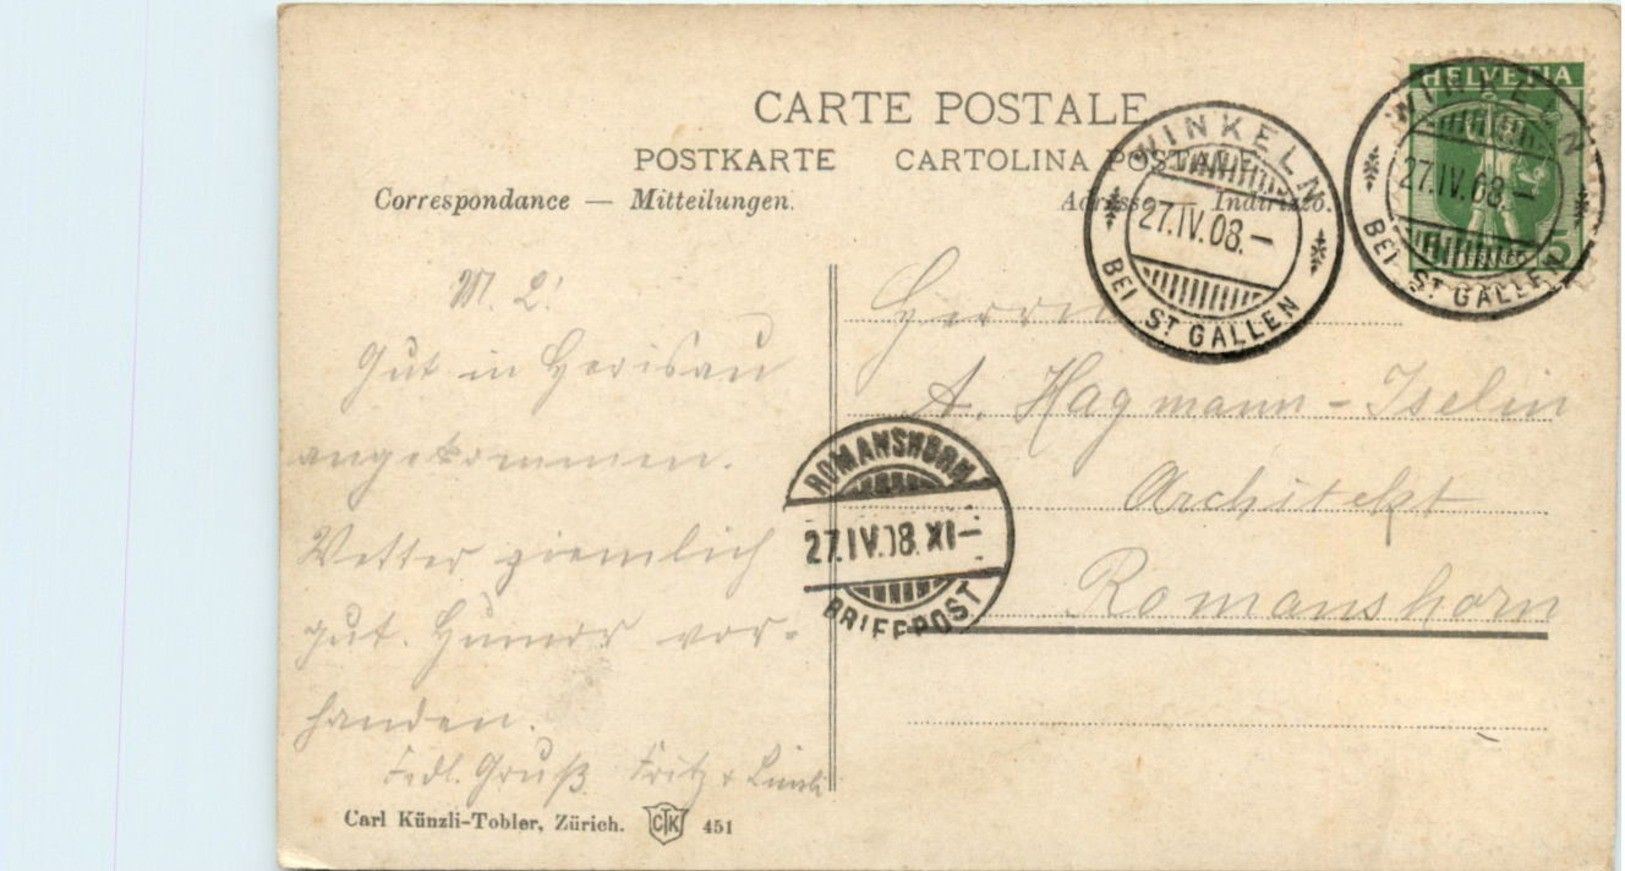 CARTE POSTALE
POSTKARTE CARTOLINA POSTALE
Correspondance — Mitteilungen.
Adresse — Indirizzo.
HELVETIA
5
WINKELN
27.IV.08.–
BEI ST GALLEN
WINKELN
27.IV.08.–
BEI ST GALLEN
M. L!
Gut in Herisau
angekommen.
Wetter ziemlich
gut. Humor vor-
handen.
Frdl. Gruß Fritz +
Herrn
A. Hagmann-Iselin
Architekt
Romanshorn
ROMANSHORN
27.IV.08.XI–
BRIEFPOST
Carl Künzli-Tobler, Zürich. CTK 451